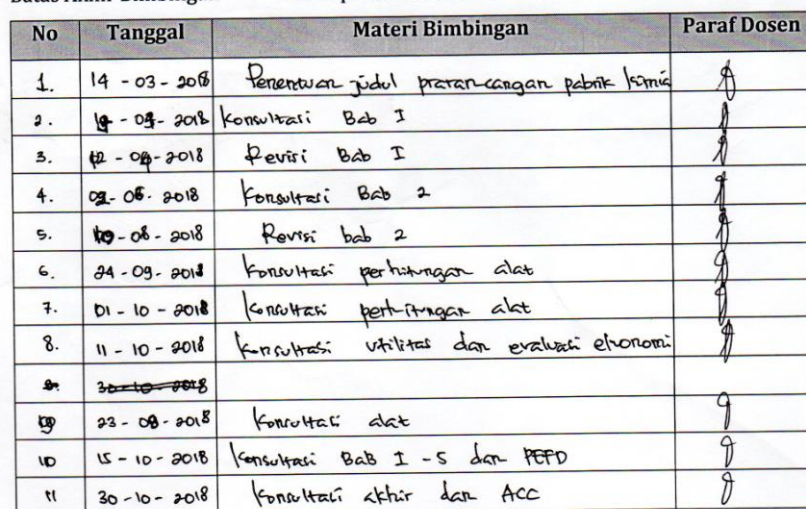 No Tanggal Materi Bimbingan Paraf Dosen
1. 14 - 03 - 2018 Penentuan judul prarancangan pabrik kimia
2. - 2018 Konsultasi Bab I
3. - 2018 Revisi Bab I
4. - 2018 Konsultasi Bab 2
5. - 08 - 2018 Revisi bab 2
6. 24 - 09 - 2018 Konsultasi perhitungan alat
7. 01 - 10 - 2018 Konsultasi perhitungan alat
8. 11 - 10 - 2018 Konsultasi utilitas dan evaluasi ekonomi
30 - 10 - 2018
23 - 08 - 2018 Konsultasi alat
10 15 - 10 - 2018 Konsultasi BaB I - 5 dan PEFD
11 30 - 10 - 2018 Konsultasi akhir dan ACC